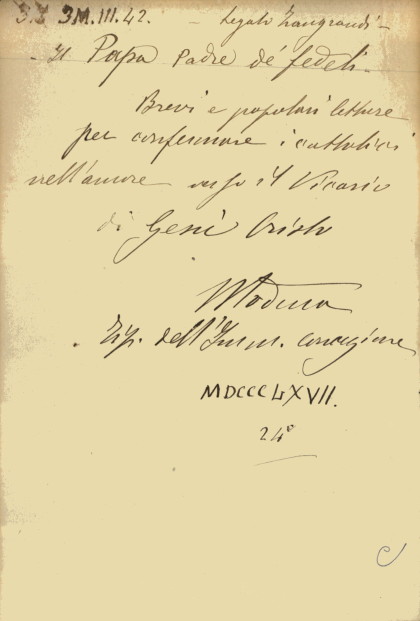 3.Z 3M.III.42. - Legato Zangrandi -
- Il Papa Padre dé fedeli -
Brevi e popolari letture
per confermare i cattolici
nell'amore verso il Vicario
di Gesù Cristo
Modena
. Tip. dell'Imm. Concezione
MDCCCLXVII.
24°